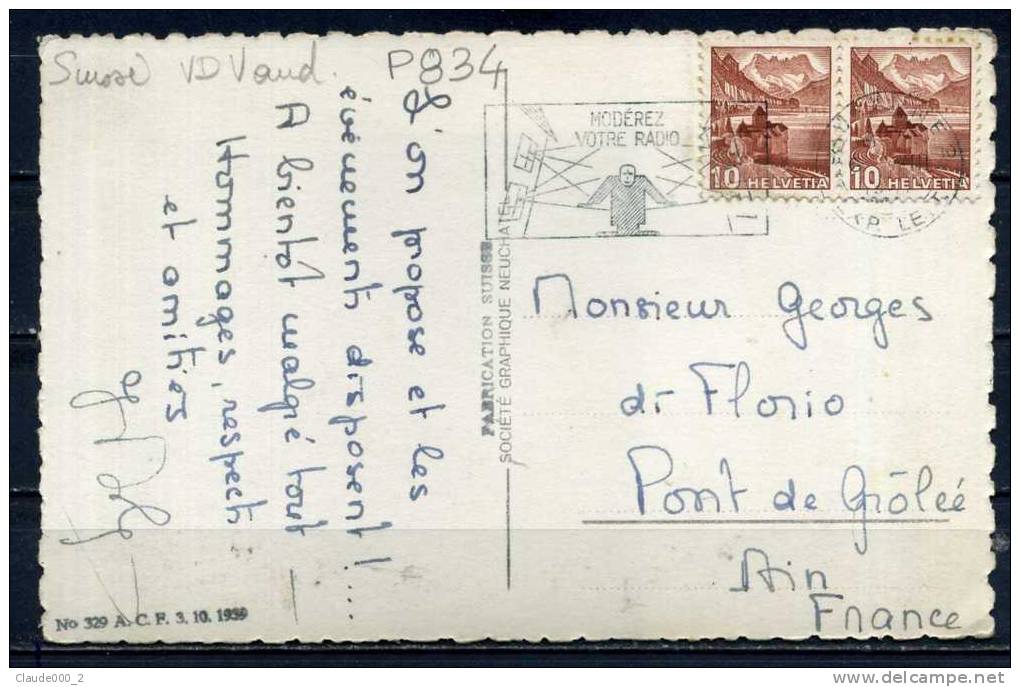 Suisse VD Vaud.
P834
L'on propose et les
évènements disposent!...
A bientôt malgré tout
Hommages, respects
et amitiés
No 329 A. C. F. 3. 10. 1939
FABRICATION SUISSE
SOCIÉTÉ GRAPHIQUE NEUCHATEL
MODÉREZ
VOTRE RADIO
10 HELVETIA
10 HELVETIA
EXP. LE
Monsieur Georges
di Florio
Pont de Grôlée
Ain
France
Claude000_2
delcampe.net